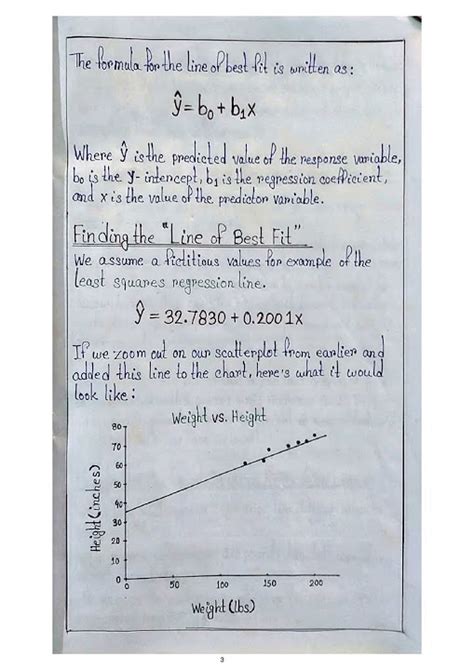 The formula for the line of best fit is written as:
ŷ = b₀ + b₁x
Where ŷ is the predicted value of the response variable,
b₀ is the y-intercept, b₁ is the regression coefficient,
and x is the value of the predictor variable.
Finding the "Line of Best Fit"
We assume a fictitious values for example of the
least squares regression line.
ŷ = 32.7830 + 0.2001x
If we zoom out on our scatterplot from earlier and
added this line to the chart, here's what it would
look like:
Weight vs. Height
Height (inches)
80
70
60
50
40
30
20
10
0
0 50 100 150 200
Weight (lbs)
3